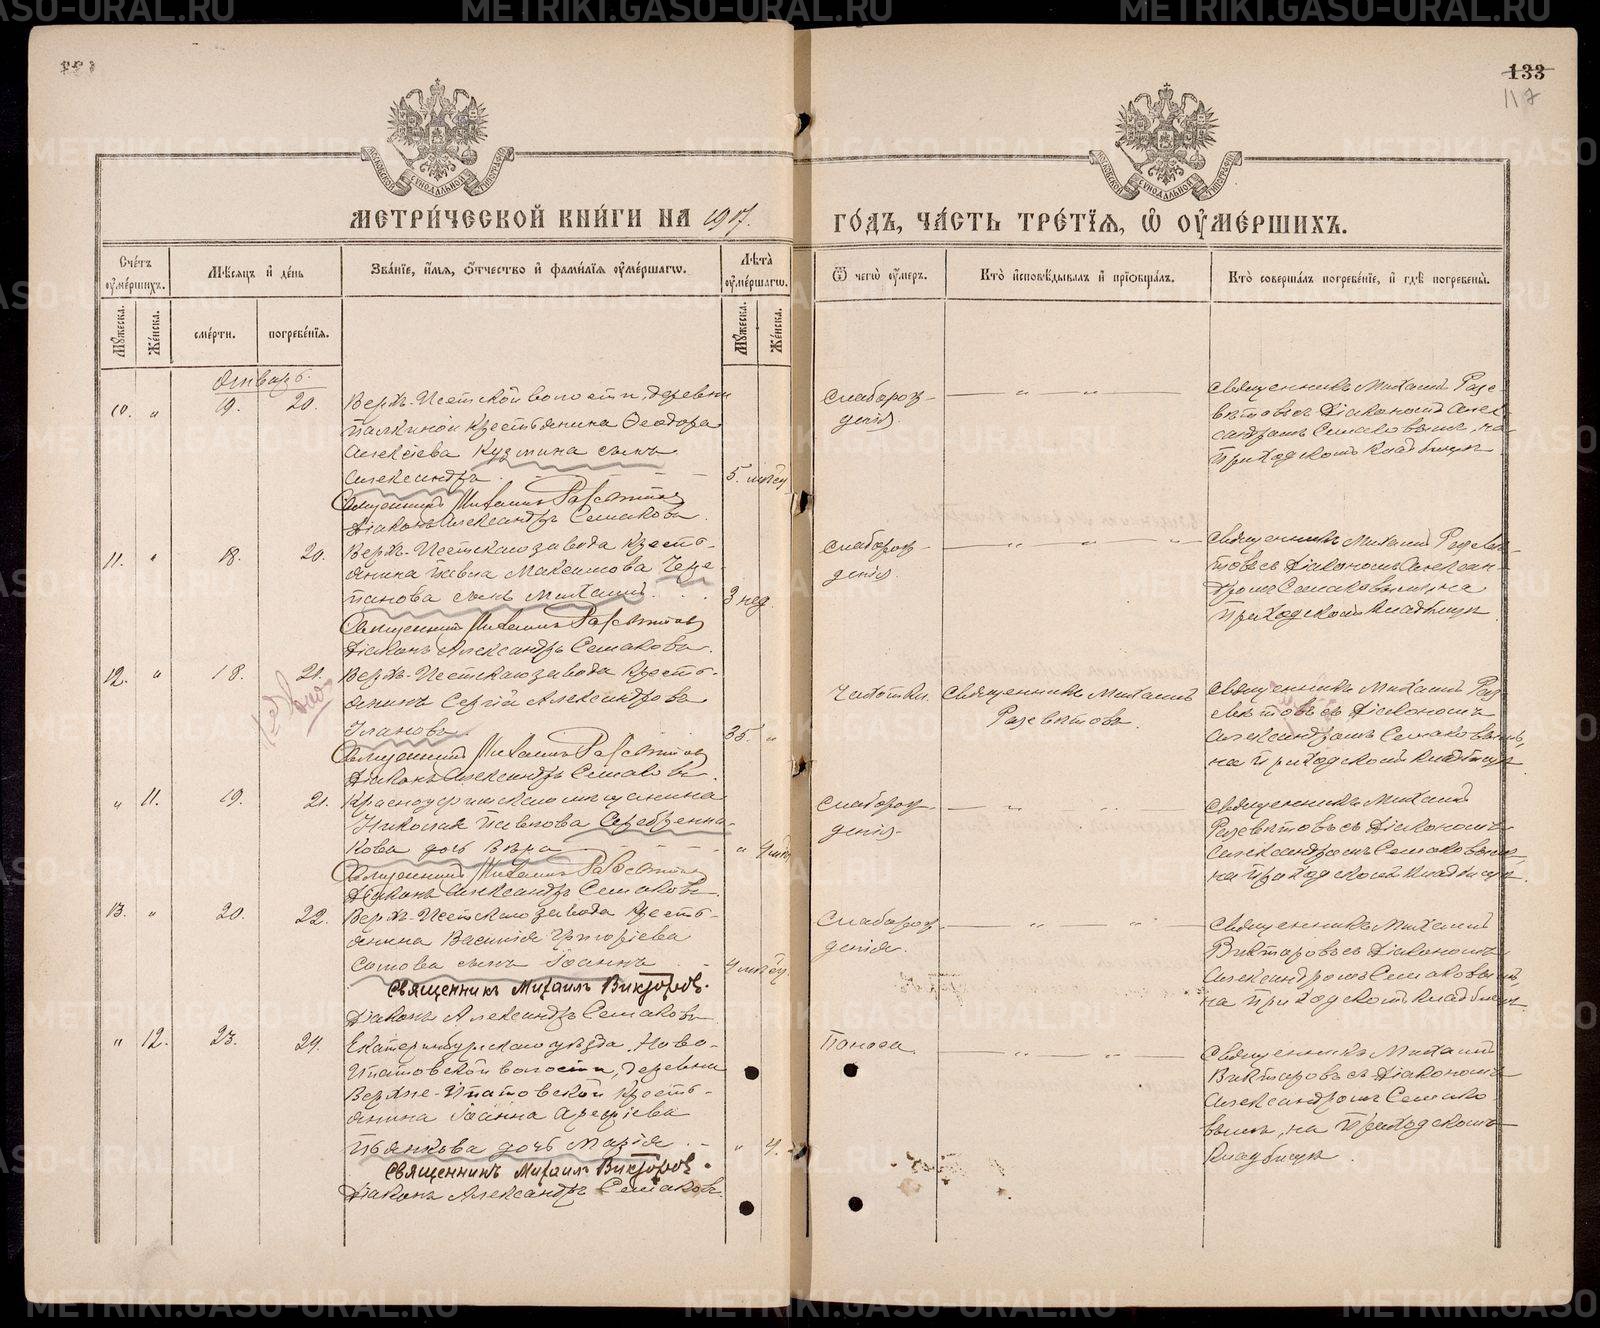 133
117
МЕТРИ́ЧЕСКОЙ КНИ́ГИ НА 1917. ГО́ДЪ, ЧА́СТЬ ТРЕ́ТЇѦ, Ѡ҆ ОУ҆МЕ́РШИХЪ.
Сче́тъ оу҆ме́ршихъ.
Мѣ́сѧцъ и҆ де́нь
Зва́нїе, и҆́мѧ, ѻ҆́тчество и҆ фами́лїѧ оу҆ме́ршагѡ.
Лѣ́та оу҆ме́ршагѡ.
Ѿ чегѡ̀ оу҆́меръ.
Кто̀ и҆сповѣ́дывалъ и҆ прїѡбща́лъ.
Кто̀ соверша́лъ погребе́нїе, и҆ гдѣ̀ погребены̀.
Мꙋ́жеска.
Же́нска.
сме́рти.
погребе́нїѧ.
Мꙋ́жеска.
Же́нска.
Январь.
10. " 19. 20. Верхъ-Исетской волости, деревни
Палкиной крестьянина Ѳеодора
Алексіева Кузмина сынъ
Александръ 5. мѣсц.
Священникъ Михаилъ
Діаконъ Александръ Семаковъ.
слаборож-
денія.
священникъ Михаилъ
съ Діакономъ Алек-
сандромъ Семаковымъ, на
приходскомъ кладбищѣ
11. " 18. 20. Верхъ-Исетскаго завода кресть-
янина Павла Максимова Чере-
панова сынъ Михаилъ. 3 нед.
Священникъ Михаилъ
Діаконъ Александръ Семаковъ.
слаборож-
денія.
священникъ Михаилъ
съ Діакономъ Алексан-
дромъ Семаковымъ, на
приходскомъ кладбищѣ
12. " 18. 21. Верхъ-Исетскаго завода кресть-
янинъ Сергій Александровъ
Улановъ. 35. "
Священникъ Михаилъ
Діаконъ Александръ Семаковъ.
Чахотки.
священникъ Михаилъ
священникъ Михаилъ
съ Діакономъ
Александромъ Семаковымъ,
на приходскомъ кладбищѣ
" 11. 19. 21. Красноуфимскаго мѣщанина
Николая Павлова Серебренни-
кова дочь Вѣра " 4 мѣс.
Священникъ Михаилъ
Діаконъ Александръ Семаковъ.
слаборож-
денія.
священникъ Михаилъ
съ Діакономъ
Александромъ Семаковымъ
на приходскомъ кладбищѣ.
13. " 20. 22. Верхъ-Исетскаго завода кресть-
янина Василія Григоріева
Сомова сынъ Іоаннъ 4 мѣсц.
Священникъ Михаилъ Викторовъ.
Діаконъ Александръ Семаковъ
слаборож-
денія.
священникъ Михаилъ
Викторовъ съ Діакономъ
Александромъ Семаковымъ,
на приходскомъ кладбищѣ
" 12. 23. 24. Екатеринбургскаго уѣзда, Ново-
Ипатовской волости, деревни
Верхне-Ипатовской кресть-
янина Іоанна Арефіева
Пьянкова дочь Марія. " 4.
Священникъ Михаилъ Викторовъ.
Діаконъ Александръ Семаковъ
Поноса
священникъ Михаилъ
Викторовъ съ Діакономъ
Александромъ Семако-
вымъ, на приходскомъ
кладбищѣ.
METRIKI.GASO-URAL.RU